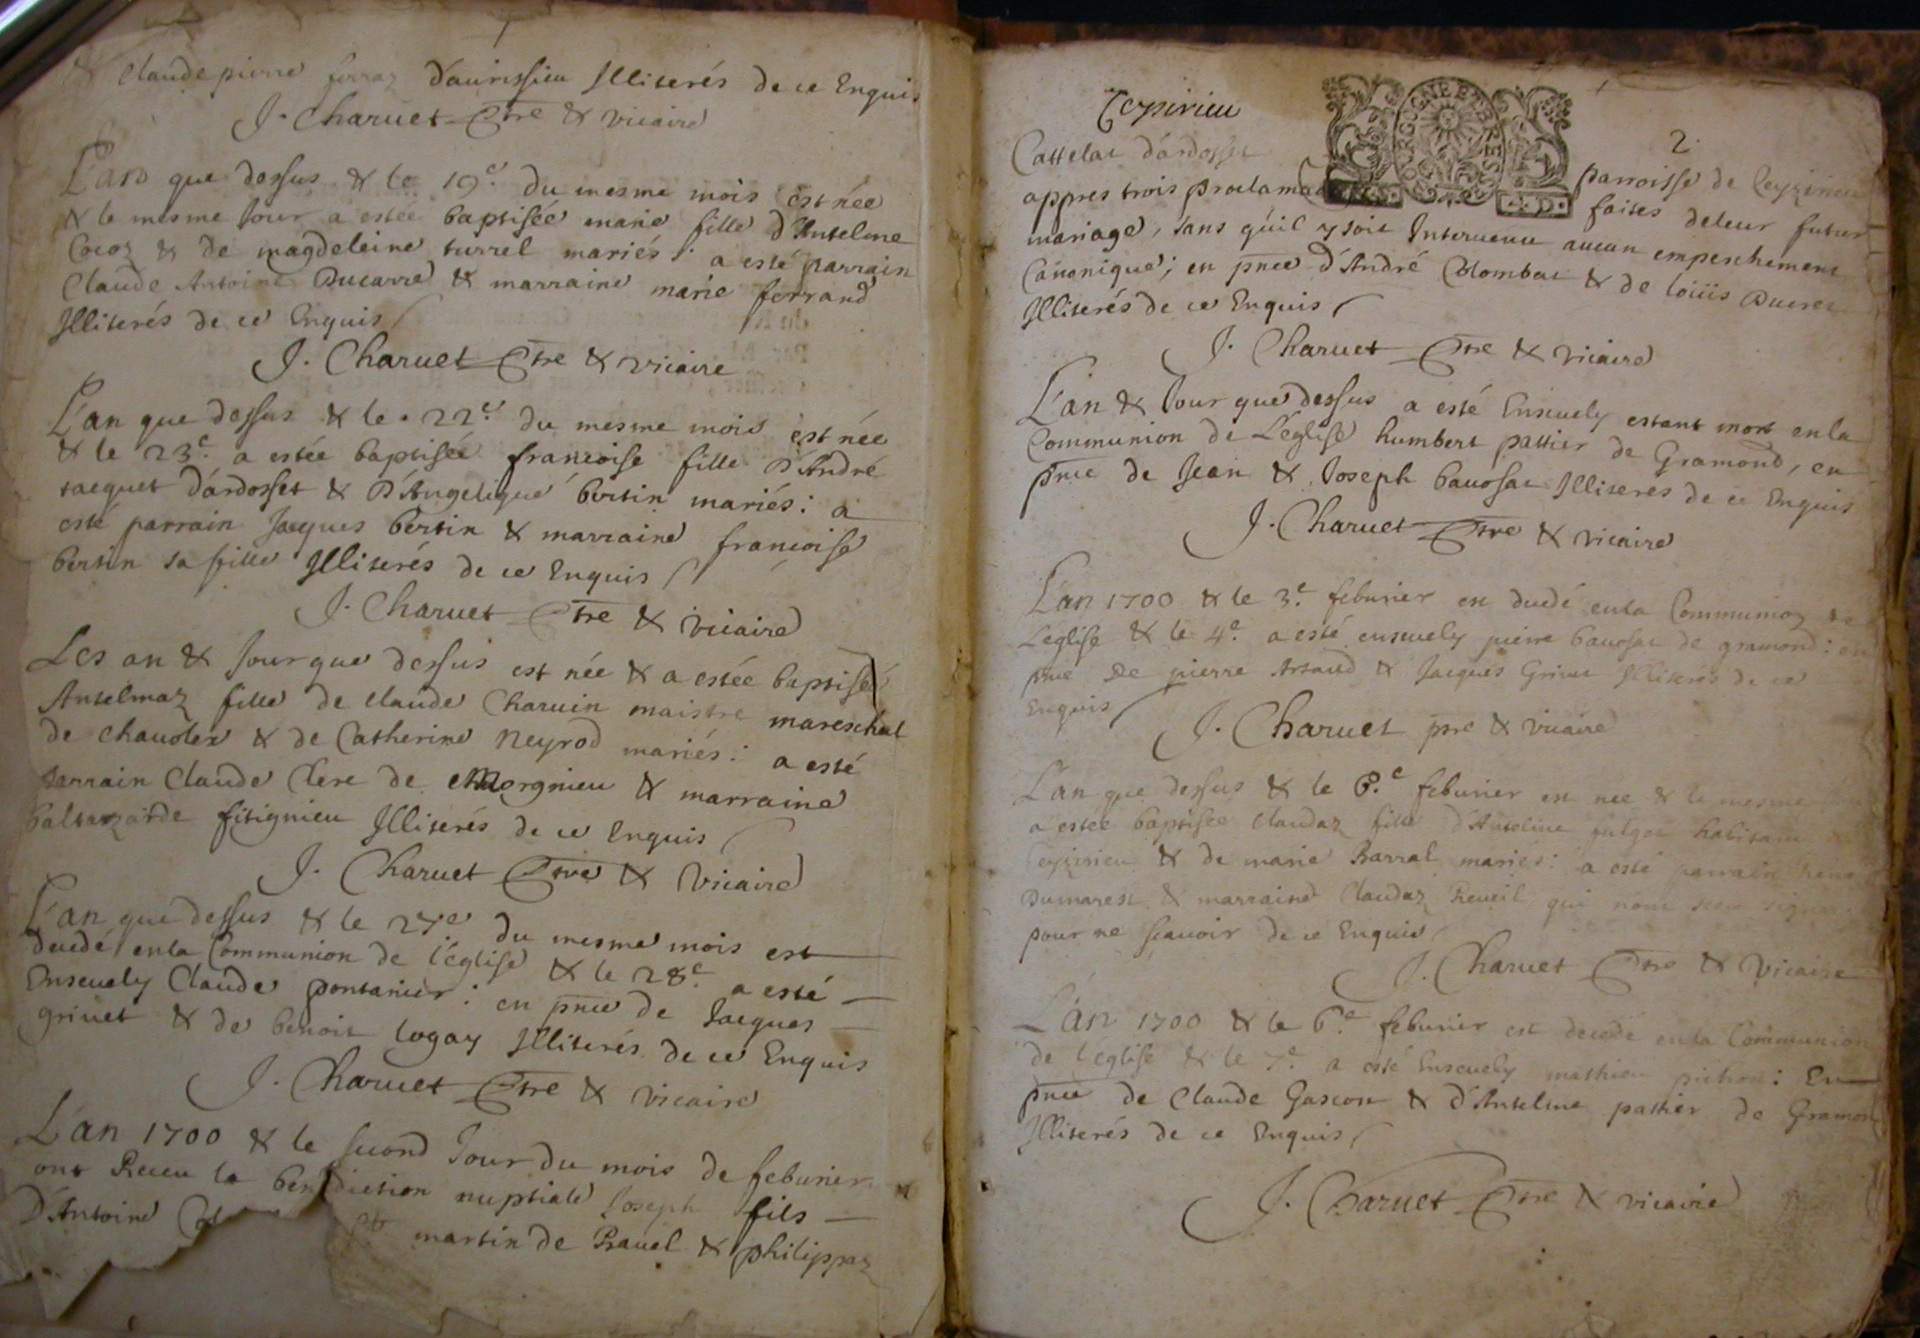 & Claude pierre ferraz d'aurissieu Illiterés de ce Enquis
J. Charuet Ptre & vicaire
L'an que dessus & le 19e. du mesme mois est née
& le mesme Jour a estée baptisée marie fille d'Antelme
Cocoz & de magdeleine turrel mariés: a esté parrain
Claude Antoine Ducarre & marraine marie ferrand
Illiterés de ce Enquis
J. Charuet Ptre & vicaire
L'an que dessus & le 22e du mesme mois est née
& le 23e. a estée baptisée francoise fille d'André
tacquet d'ardosset & d'Angelique bertin mariés: a
esté parrain Jacques bertin & marraine francoise
bertin sa fille Illiterés de ce Enquis
J. Charuet Ptre & vicaire
Les an & Jour que dessus est née & a estée baptisée
Antelmaz fille de claude Charuin maistre mareschal
de chauolex & de Catherine Neyrod mariés: a esté
parrain Claude Clerc de Morgnieu & marraine
baltazarde fitignieu Illiterés de ce Enquis
J. Charuet Ptre & vicaire
L'an que dessus & le 27e du mesme mois est
decedé en la Communion de l'église & le 28e a esté
Enseuely Claude pontanier: en pnce de Jacques
griuet & de benoit logay Illiterés de ce Enquis
J. Charuet Ptre & vicaire
L'an 1700 & le second Jour du mois de feburier
ont Receu la benediction nuptiale Joseph fils
D'Antoine martin de Rauel & philippaz
Ceyzirieu
BORGOGNE ET BRESSE
2.
Cattelat d'ardosset parroisse de Ceyzirieu
appres trois proclama faites de leur futur
mariage, sans qu'il y soit Interuenu aucun empeschement
Canonique; en pnce d'André Colombat & de loüis Ducret
Illiterés de ce Enquis
J. Charuet Ptre & vicaire
L'an & Jour que dessus a esté Enseuely estant mort en la
Communion de L'église humbert pattier de Gramond, en
pnce de Jean & Joseph bauosat Illiterés de ce Enquis
J. Charuet Ptre & vicaire
L'an 1700 & le 3e. feburier est decedé en la Communion de
L'église & le 4e. a esté enseuely pierre bauosat de gramond: en
pnce De pierre Artaud & Jacques Griuet Illiterés de ce
Enquis
J. Charuet pre & vicaire
L'an que dessus & le 6.e feburier est nee & le mesme
a estée baptisée Claudaz fille d'Antelme fulget habitant
Ceyzirieu & de marie Barral mariés: a esté parrain
Dumarest & marraine Claudaz Reueil qui n'ont sceu signer
pour ne scauoir de ce Enquis
J. Charuet Ptre & Vicaire
L'an 1700 & le 6e. feburier est decedé en la Communion
de l'église & le 7e. a esté Enseuely mathieu pichon: En
pnce de Claude Gascon & d'Antelme pattier de Gramond
Illiterés de ce Enquis
J. Charuet Ptre & vicaire